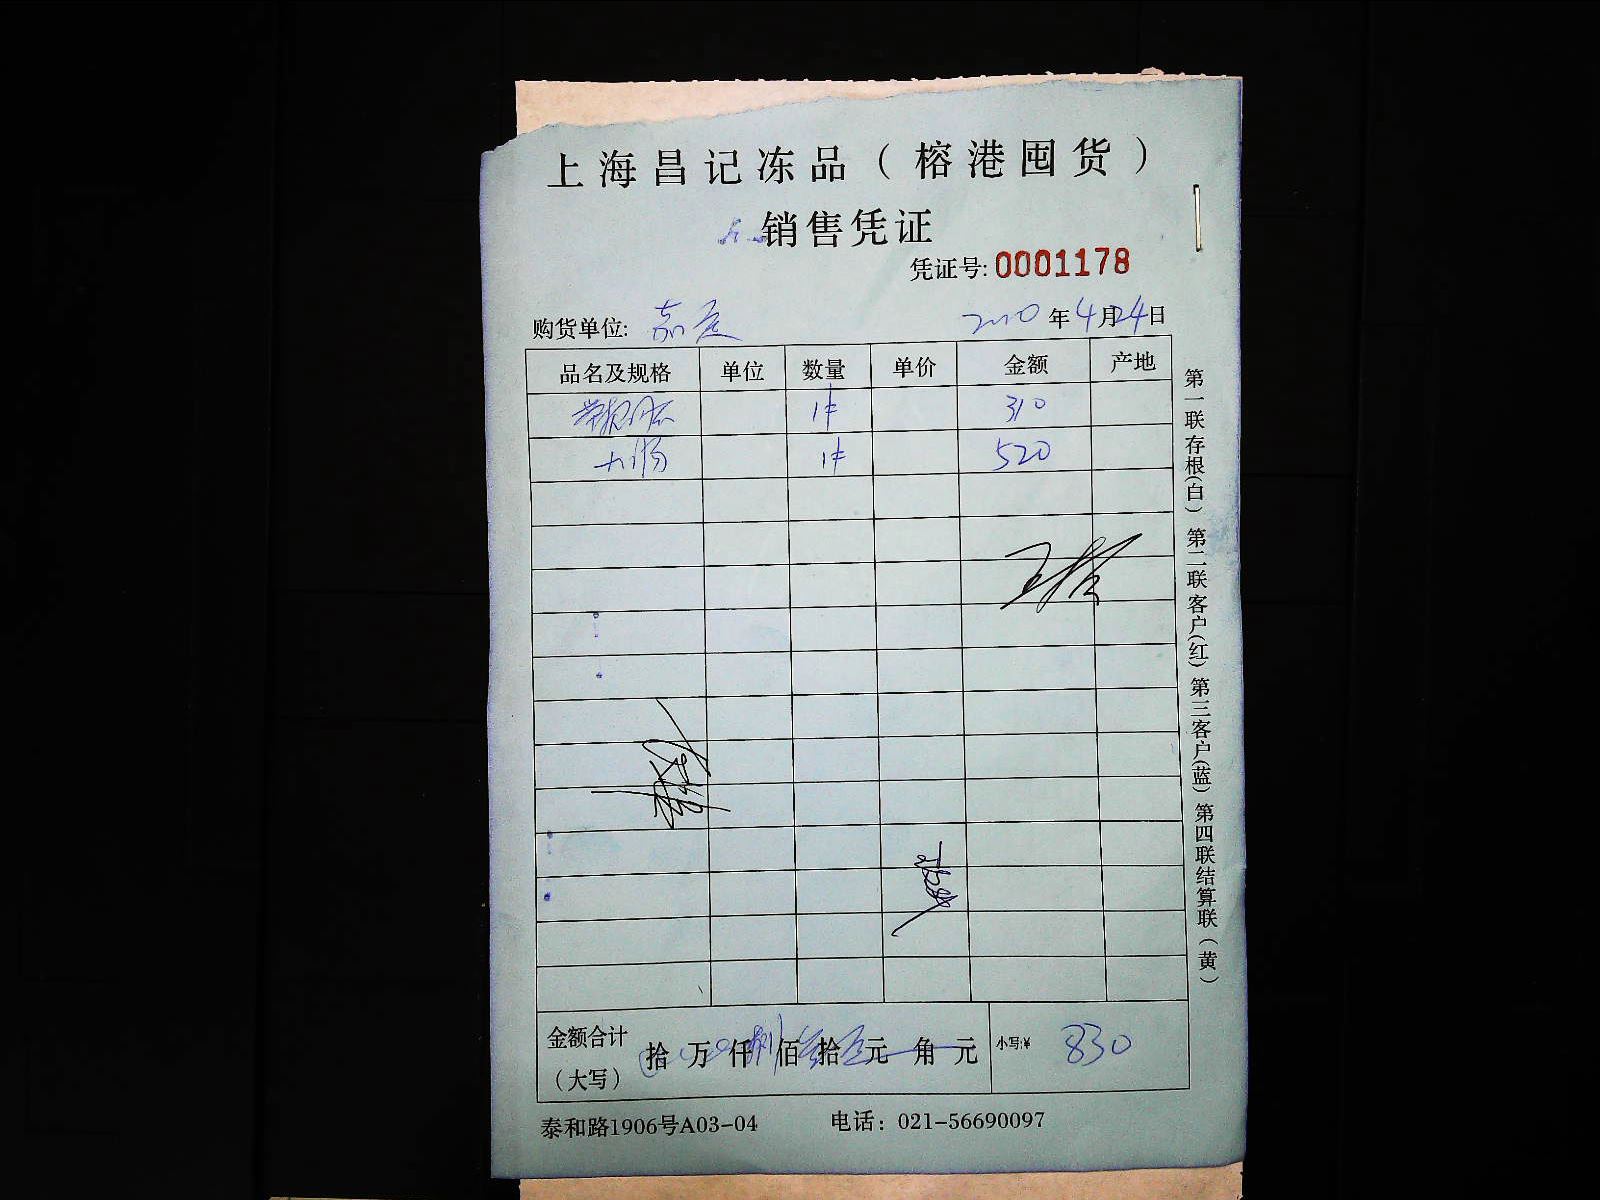 上海昌记冻品（榕港囤货）
销售凭证
凭证号: 0001178
购货单位: 嘉 2010 年 4 月 24 日
品名及规格 单位 数量 单价 金额 产地
1件 310
大肠 1件 520
金额合计（大写） 拾 万 仟 捌 佰 叁 拾 元 角 元 小写:¥ 830
泰和路1906号A03-04 电话：021-56690097
第一联存根(白) 第二联客户(红) 第三客户(蓝) 第四联结算联(黄)